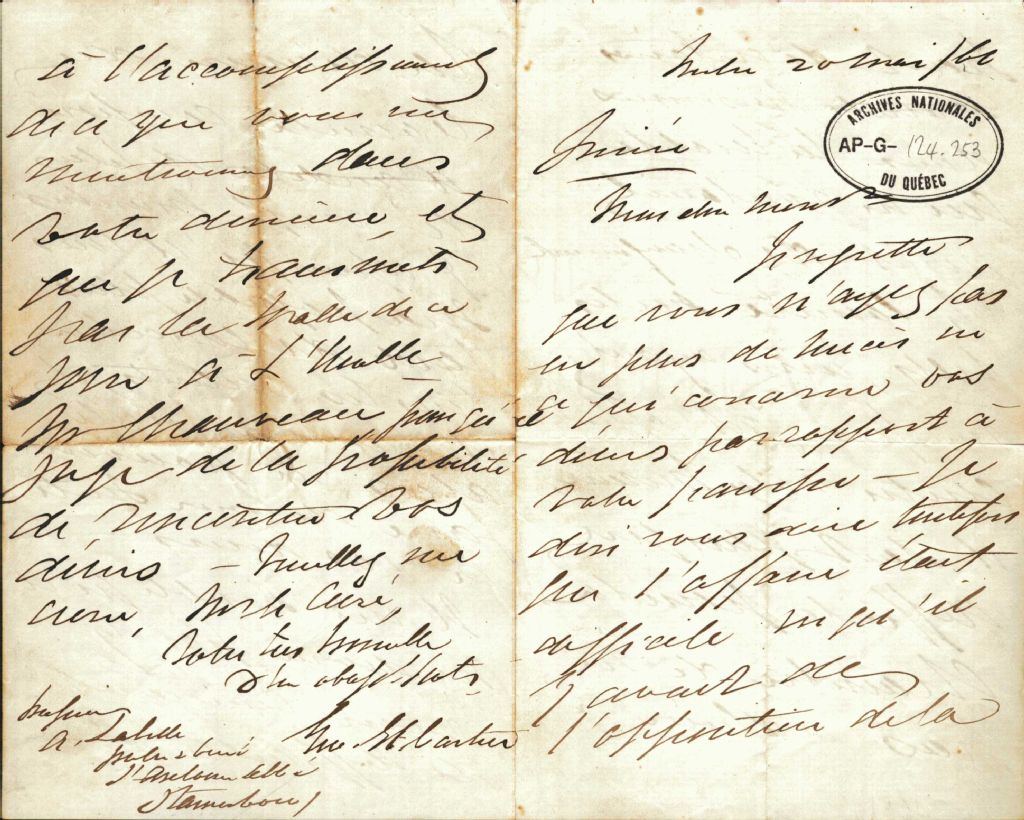 20 mai /61
Privée
ARCHIVES NATIONALES
AP-G- 124.253
DU QUÉBEC
Mon cher Monsr
Je regrette
que vous n'ayez pas
eu plus de succès en
ce qui concerne vos
désirs par rapport à
votre paroisse – Je
dois vous dire toutefois
que l'affaire était
difficile vu qu'il
y avait de
l'opposition de la
à l'accomplissement
de ce que vous me
mentionnez dans
votre dernière, et
que je transmets
par la malle de ce
jour à L'Honble
Mr Chauveau pour qu'il
juge de la possibilité
de rencontrer vos
désirs – Veuillez me
croire, Mons le Curé,
Votre très humble
Geo. Et. Cartier
Messire
A. Labelle